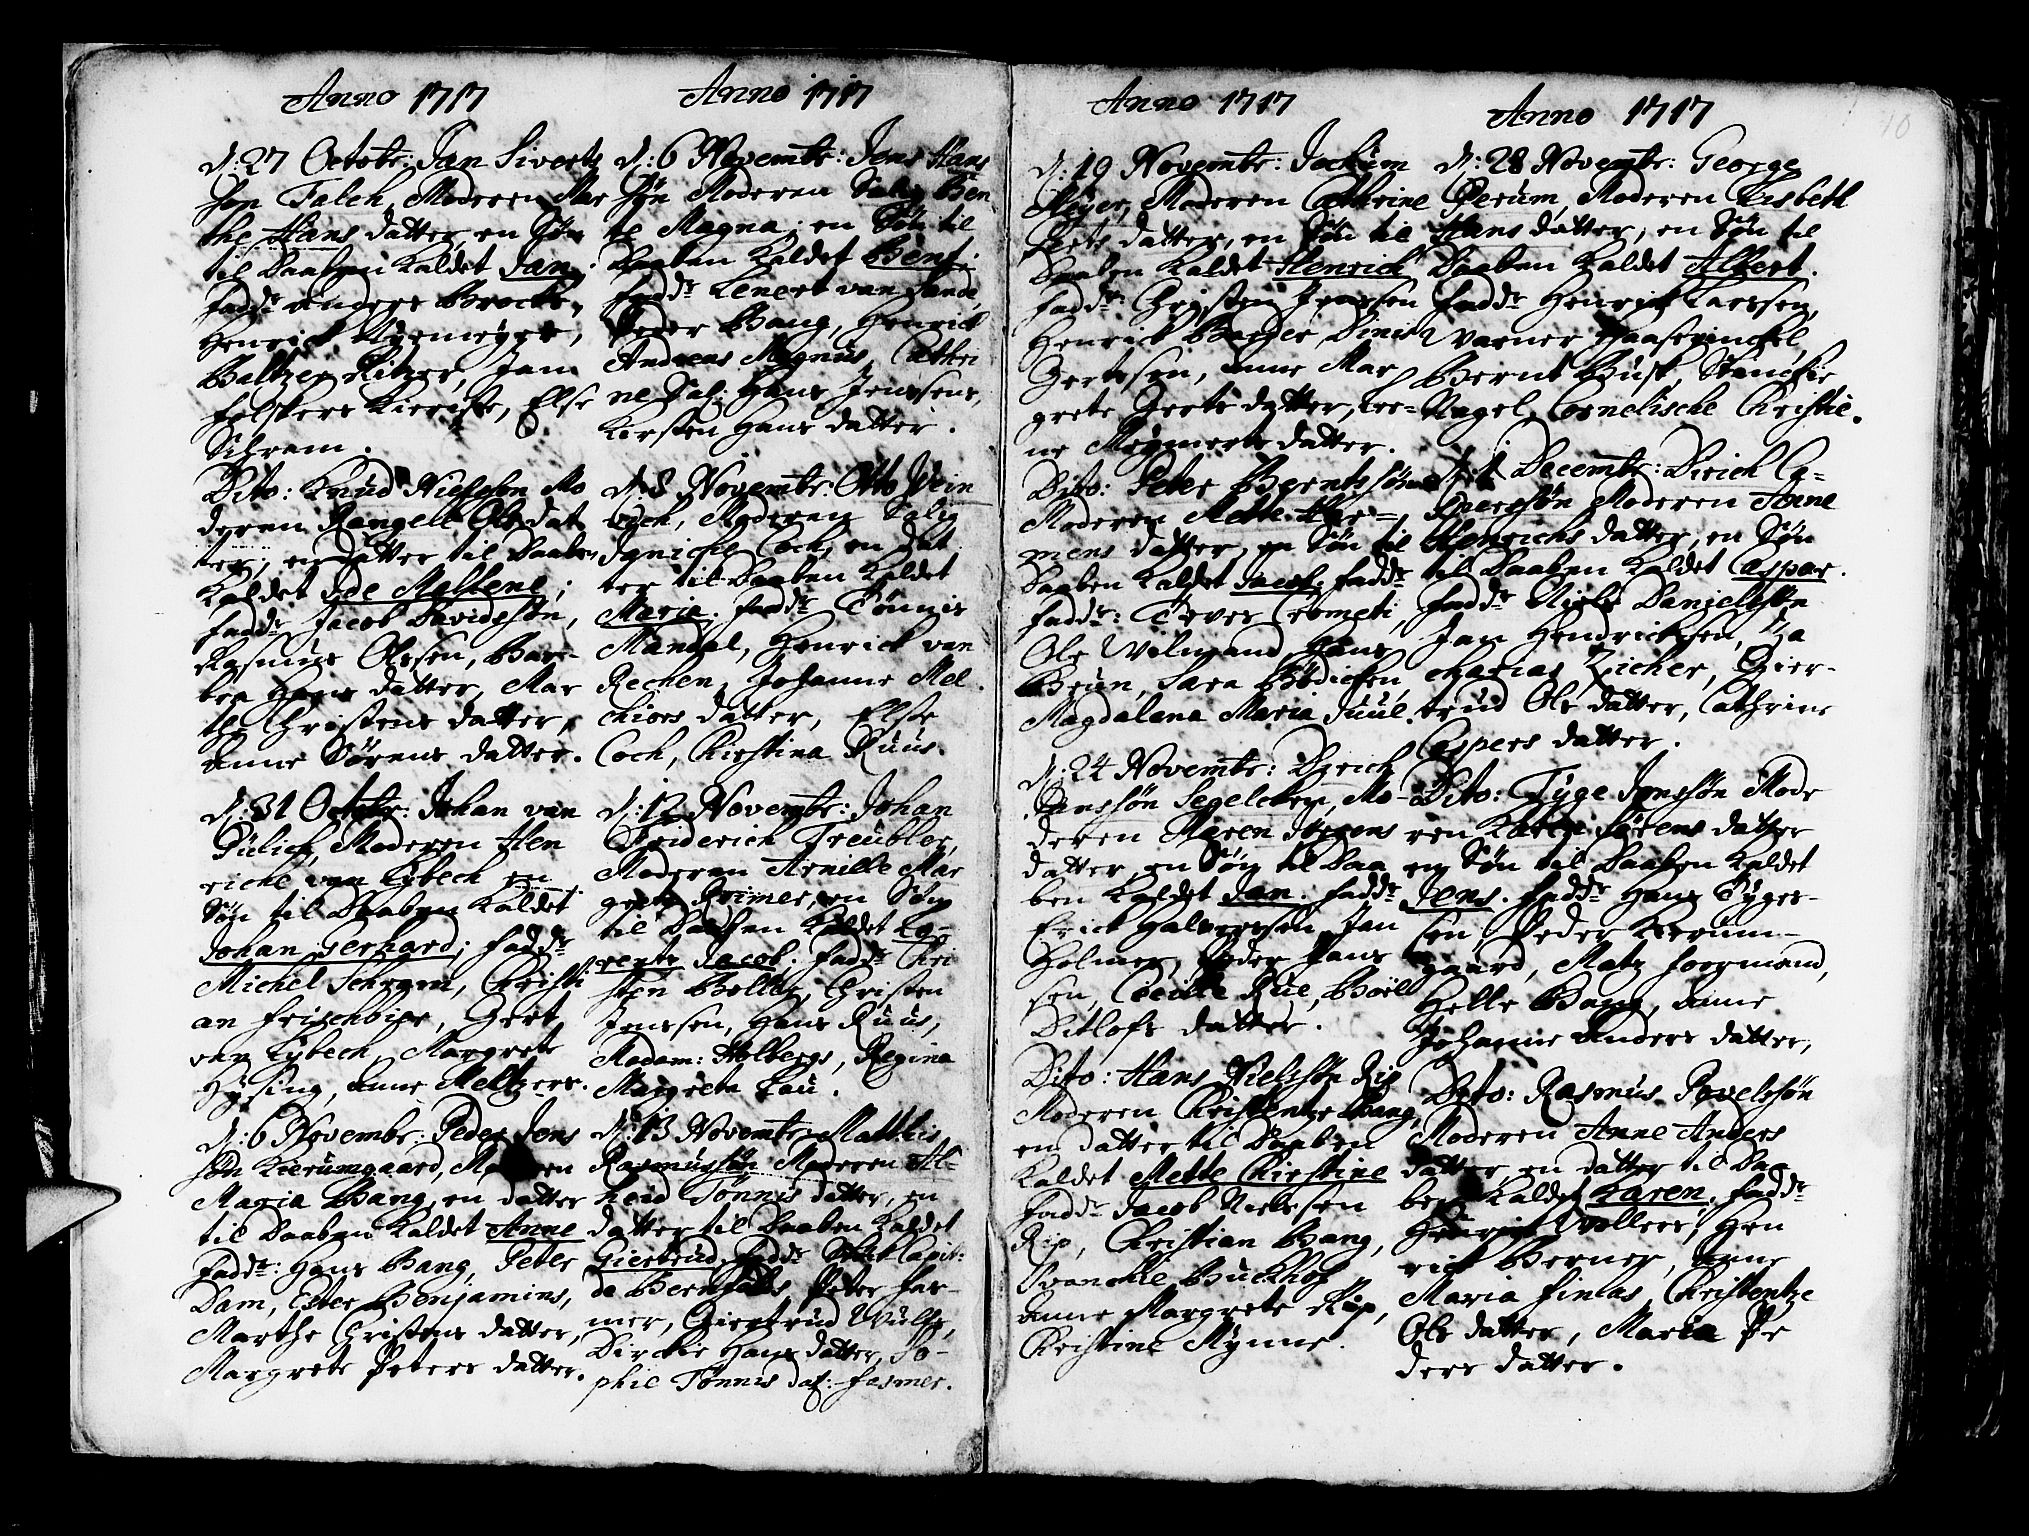 Anno 1717
d: 27 Octobr: Jan Siverts
søn Falch, Moderen Mar
the Hans datter, en Søn
til Daaben kaldet Jan.
fadd: Anders Brock,
Henrich
Baltzer Ritzer, Jan
Feltskers Kieriste, Else
Schram.
Dito: Knud Nielssøn Mo
deren Rangele Ols dat
ter, en datter til Daaben
kaldet Ide Mallene;
fadd: Jacob Davidssøn,
Rasmus Olesen, Bar-
bra Hans datter, Mar
the Christens datter,
Anne Sørens datter.
d: 31 Octobr: Johan van
Gülich, Moderen Hen
riche van Lybech en
Søn til Daaben kaldet
Johan Gerhard; fadd:
Michel Schram, Christi
an Frischbier, Gert
van Lybech, Margrete
Hysing, Anne Meltzers.
d: 6 Novembr: Peder Jens
søn Kierumgaard, Moderen
Maria Bang, en datter
til Daaben kaldet Anne
fadd: Hans Bang, Peter
Dam, Ester Benjamins,
Marthe Christens datter,
Margrete Peters datter.
Anno 1717
d: 6 Novembr: Jens Hans
søn Moderen Salig Ben
te Magna, en Søn til
Daaben kaldet Bent.
fadd: Lenert van Sande,
Peder Bang, Henrich
Andreas Magnus, Cathri
ne Sal: Hans Jenssens,
Kirsten Hans datter.
d: 8 Novembr: Otto Wein
wich, Moderen Salig
Janiche Coch, en dat
ter til Daaben kaldet
Maria. fadd: Tønnis
Mandal, Henrich van
Rechen, Johanne Mel
chiors datter, Else
Coch, Kirstina Ruus.
d: 12 Novembr: Johan
Friderich Treubler,
Moderen Arnille Mar
grete Reimer, en Søn
til Daaben kaldet La-
rents Jacob. fadd: Chri
sten Boldt, Christen
Jenssen, Hans Ruus,
Madam: Holbergs, Regina
Margrete Lau.
d: 13 Novembr: Matthis
Rasmussøn Moderen Al-
heid Tønnis datter, en
datter til Daaben kaldet
Giertrud. fadd: Capit:
de Bernfeldt, Peter Far-
mer, Giertrud Wulff,
Dirchie Hans datter, So-
phie Tønnis dat: Fasmer.
Anno 1717
d: 19 Novembr: Jochum
Meyer, Moderen Cathrine
Gerts datter, en Søn til
Daaben kaldet Henrich
fadd: Cristen Iversen
Henrich Barder Dinis
Gertssen, Anne Mar
grete Gerts datter, Le-
ne Meymerts datter.
Dito: Peter Berntssøn
Moderen Mette Har-
mens datter, en Søn til
Daaben kaldet Jacob. fadd:
fadd: Tever Cromeh,
Ole Wilmand Hans
Brun, Sara Bødichen,
Magdalena Maria Juul.
d: 24 Novembr: Dirich
Janssøn Segelchen, Mo-
deren Maren Jørgens
datter, en Søn til Daa
ben kaldet Jan. fadd:
Erick Halvorssen, Jan
Holmer, Peder Hans
sen, Cecille Rue, Boel
Ditlofs datter.
Dito: Hans Nielssøn Rip
Moderen Christentze Bang,
en datter til Daaben
kaldet Mette Kirstine
fadd: Jacob Nielssen
Rip, Christian Bang,
Svanchie Buckhof
Anne Margrete Rip,
Christine Mynne.
Anno 1717
10
d: 28 Novembr: George
Perum, Moderen Lisbeth
Hans datter, en Søn til
Daaben kaldet Albert.
fadd: Henrich Larssen,
Varner Haasewinckel
Bernt Busk, Stenchie
Nagel, Cornelische Christie.
d: 1 Decembr: Dirich Ca-
sperssøn Moderen Anne
Henrichs datter, en Søn
til Daaben kaldet Caspar.
fadd: Niels Danjelssøn
Jan Hendrichsen, Za
charias Zicher, Gier-
trud Ols datter, Cathrine
Caspers datter.
Dito: Tyge Jenssøn Mode
ren Karen Sørens datter
en Søn til Daaben kaldet
Jens. fadd: Hans Tyger-
sen, Peder Kierum-
gaard, Matz Formand,
Helle Bang, Anne
Johanne Anders datter,
Dito: Rasmus Povelssøn
Moderen Anne Anders
datter, en datter til Daa
ben kaldet Karen. fadd:
Henrich Vollers, Hen
rich Berner, Anne
Maria Finlas, Christentze
Ols datter, Maria Pe
ders datter.